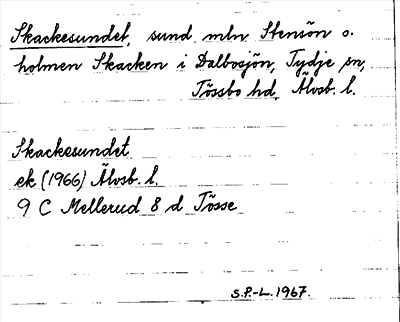 Skackesundet, sund mln Stensön o.
holmen Skacken i Dalbosjön, Tydje sn,
Tössbo hd, Älvsb. l.
Skackesundet
ek (1966) Älvsb. l.
9 C Mellerud 8 d Tösse
S.P.-L. 1967.